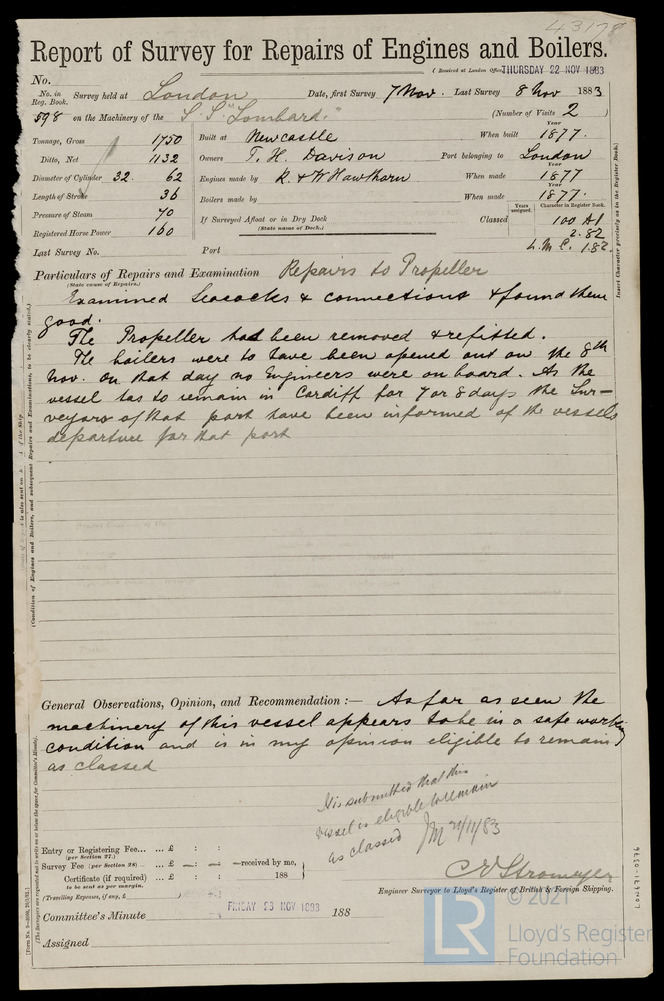 43178
Report of Survey for Repairs of Engines and Boilers.
(Received at London Office THURSDAY 22 NOV 1883
No.
No. in Reg. Book. Survey held at London Date, first Survey 7 Nov. Last Survey 8 Nov 1883
598 on the Machinery of the S.S. "Lombard." (Number of Visits 2)
Tonnage, Gross 1750 Built at Newcastle When built Year 1877.
Ditto, Net 1132 Owners T. H. Davison Port belonging to London
Diameter of Cylinder 32. 62 Engines made by R. & W Hawthorn When made Year 1877
Length of Stroke 36 Boilers made by When made Year 1877.
Pressure of Steam 70 If Surveyed Afloat or in Dry Dock Classed Years assigned. Character in Register Book. 100 A1
Registered Horse Power 160 (State name of Dock.) 2.82
Last Survey No. Port L.M.C. 1.82.
Particulars of Repairs and Examination Repairs to Propeller
(State cause of Repairs.)
Examined Seacocks & connections & found them
good.
The Propeller had been removed & refitted.
The boilers were to have been opened out on the 8th
Nov. On that day no Engineers were on board. As the
vessel has to remain in Cardiff for 7 or 8 days the Sur-
veyors of that port have been informed of the vessels
departure for that port
General Observations, Opinion, and Recommendation :— As far as seen the
machinery of this vessel appears to be in a safe working
condition and is in my opinion eligible to remain
as classed
It is submitted that this
vessel is eligible to remain
as classed
21/11/83
Entry or Registering Fee... ... £ : :
(per Section 27.)
Survey Fee (per Section 28) ... ... £ — : — : — received by me,
Certificate (if required) ... £ : : 188
to be sent as per margin.
(Travelling Expenses, if any, £ )
C E Stromeyer
Engineer Surveyor to Lloyd's Register of British & Foreign Shipping.
Committee's Minute FRIDAY 23 NOV 1883 188
Assigned
Insert Character precisely as in the Register Book.
(Condition of Engines and Boilers, and subsequent Repairs and Examinations, to be clearly stated.)
(The Surveyors are requested not to write on or below the space for Committee's Minute).
LON671-0537R
© 2021
LR
Lloyd's Register
Foundation